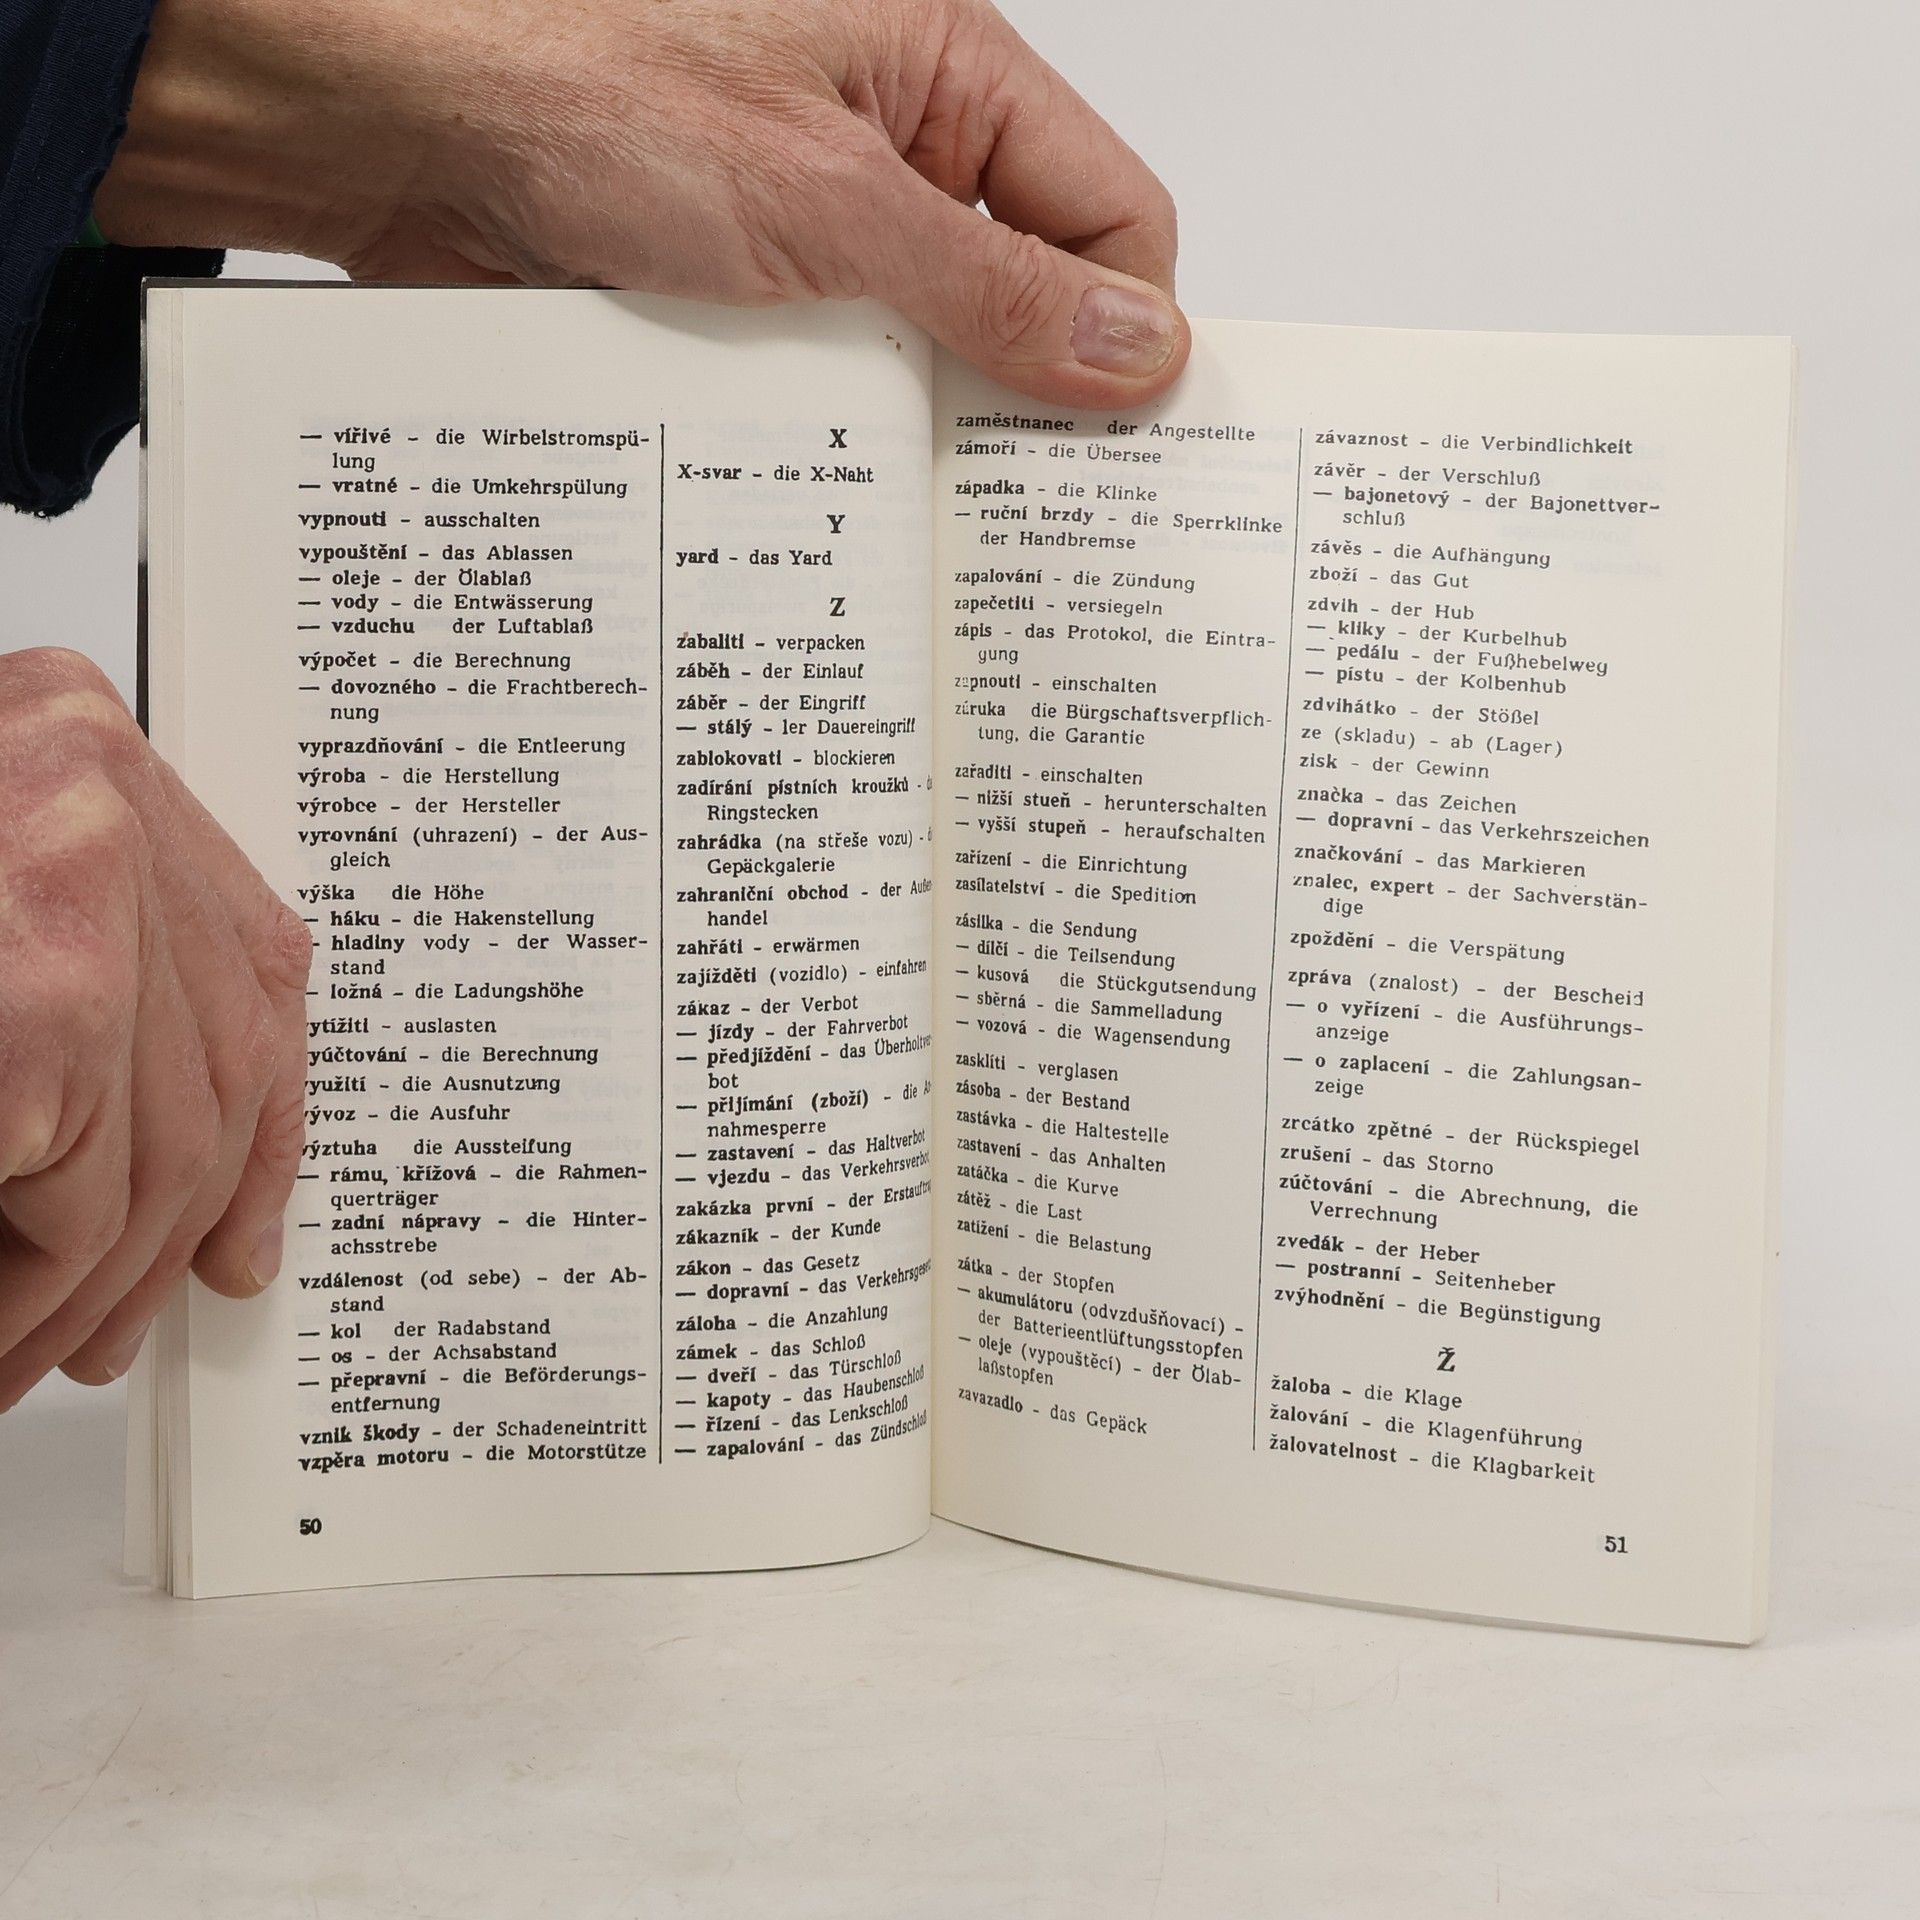 — vířivé – die Wirbelstromspü-
lung
— vratné – die Umkehrspülung
vypnouti – ausschalten
vypouštění – das Ablassen
— oleje – der Ölablaß
— vody – die Entwässerung
— vzduchu der Luftablaß
výpočet – die Berechnung
— dovozného – die Frachtberech-
nung
vyprazdňování – die Entleerung
výroba – die Herstellung
výrobce – der Hersteller
vyrovnání (uhrazení) – der Aus-
gleich
výška die Höhe
— háku – die Hakenstellung
— hladiny vody – der Wasser-
stand
— ložná – die Ladungshöhe
ytížiti – auslasten
yúčtování – die Berechnung
využití – die Ausnutzung
vývoz – die Ausfuhr
výztuha die Aussteifung
— rámu, křížová – die Rahmen-
querträger
— zadní nápravy – die Hinter-
achsstrebe
vzdálenost (od sebe) – der Ab-
stand
— kol der Radabstand
— os – der Achsabstand
— přepravní – die Beförderungs-
entfernung
vznik škody – der Schadeneintritt
vzpěra motoru – die Motorstütze
50
X
X-svar – die X-Naht
Y
yard – das Yard
Z
zabaliti – verpacken
záběh – der Einlauf
záběr – der Eingriff
— stálý – ler Dauereingriff
zablokovati – blockieren
zadírání pístních kroužků -
Ringstecken
zahrádka (na střeše vozu) -
Gepäckgalerie
zahraniční obchod – der Außen
handel
zahřáti – erwärmen
zajížděti (vozidlo) – einfahren
zákaz – der Verbot
— jízdy – der Fahrverbot
— předjíždění – das Überholtver
bot
— přijímání (zboží) – die An
nahmesperre
— zastavení – das Haltverbot
— vjezdu – das Verkehrsverbot
zakázka první – der Erstauftrag
zákazník – der Kunde
zákon – das Gesetz
— dopravní – das Verkehrsgesetz
záloha – die Anzahlung
zámek – das Schloß
— dveří – das Türschloß
— kapoty – das Haubenschloß
— řízení – das Lenkschloß
— zapalování – das Zündschloß
zaměstnanec der Angestellte
zámoří – die Übersee
západka – die Klinke
— ruční brzdy – die Sperrklinke
der Handbremse
zapalování – die Zündung
zapečetiti – versiegeln
zápis – das Protokol, die Eintra-
gung
zapnouti – einschalten
záruka die Bürgschaftsverpflich-
tung, die Garantie
zařaditi – einschalten
— nižší stueň – herunterschalten
— vyšší stupeň – heraufschalten
zařízení – die Einrichtung
zasílatelství – die Spedition
zásilka – die Sendung
— dílčí – die Teilsendung
— kusová die Stückgutsendung
— sběrná – die Sammelladung
— vozová – die Wagensendung
zaskliti – verglasen
zásoba – der Bestand
zastávka – die Haltestelle
zastavení – das Anhalten
zatáčka – die Kurve
zátěž – die Last
zatížení – die Belastung
zátka – der Stopfen
— akumulátoru (odvzdušňovací) –
der Batterieentlüftungsstopfen
— oleje (vypouštěcí) – der Ölab-
laßstopfen
zavazadlo – das Gepäck
závaznost – die Verbindlichkeit
závěr – der Verschluß
— bajonetový – der Bajonettver-
schluß
závěs – die Aufhängung
zboží – das Gut
zdvih – der Hub
— kliky – der Kurbelhub
— pedálu – der Fußhebelweg
— pístu – der Kolbenhub
zdvihátko – der Stößel
ze (skladu) – ab (Lager)
zisk – der Gewinn
značka – das Zeichen
— dopravní – das Verkehrszeichen
značkování – das Markieren
znalec, expert – der Sachverstän-
dige
zpoždění – die Verspätung
zpráva (znalost) – der Bescheid
— o vyřízení – die Ausführungs-
anzeige
— o zaplacení – die Zahlungsan-
zeige
zrcátko zpětné – der Rückspiegel
zrušení – das Storno
zúčtování – die Abrechnung, die
Verrechnung
zvedák – der Heber
— postranní – Seitenheber
zvýhodnění – die Begünstigung
Ž
žaloba – die Klage
žalování – die Klagenführung
žalovatelnost – die Klagbarkeit
51